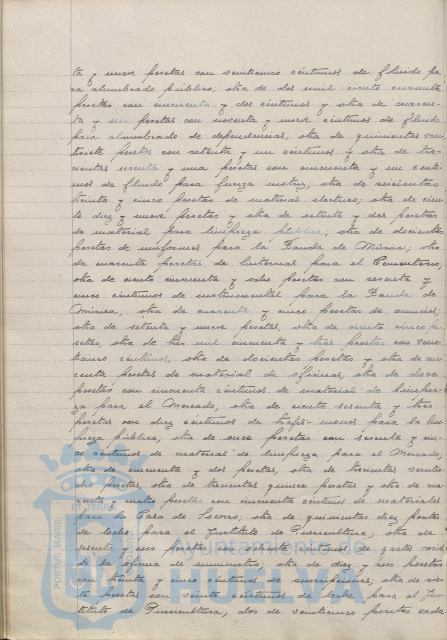 ta y nueve pesetas con veinticinco céntimos de fluido pa
ra alumbrado público; otra de dos mil ciento cincuenta
pesetas con cincuenta y dos céntimos y otra de cuaren-
ta y seis pesetas con noventa y nueve céntimos de fluido
para alumbrado de dependencias; otra de quinientas vein
pesetas con setenta y un céntimos y otra de tres-
cientas sesenta y una pesetas con cincuenta y un cénti-
mos de fluido para fuerza motriz; otra de seiscientas
treinta y cinco pesetas de material electrico; otra de cien-
to diez y nueve pesetas y otra de setenta y dos pesetas
de material para limpieza pública; otra de doscientas
pesetas de uniformes para la Banda de Música; otra
de cuarenta pesetas de linternas para el Cementerio;
otra de ciento cincuenta y ocho pesetas con sesenta y
cinco céntimos de instrumental para la Banda de
Música; otra de cuarenta y cinco pesetas de anuncios;
otra de setenta y nueve pesetas, otra de ciento cinco pe-
setas, otra de tres mil cincuenta y tres pesetas con vein-
ticinco céntimos, otra de doscientas pesetas y otra de cua
renta pesetas de material de oficinas; otra de doce
pesetas con cincuenta céntimos de material de limpie-
za para el Mercado; otra de ciento sesenta y tres
pesetas con diez céntimos de trapos para la lim
pieza pública; otra de once pesetas con sesenta y cin-
co céntimos de material de limpieza para el Mercado;
otra de cincuenta y dos pesetas, otra de trescientas veinti
pesetas, otra de trescientas quince pesetas y otra de cua
renta y pesetas con cincuenta céntimos de materiales
para la Casa de Socorro; otra de quinientas diez pesetas
de leche para el Instituto de Puericultura; otra de
sesenta y seis pesetas con ochenta céntimos de gastos
de la oficina de suministros; otra de diez y seis pesetas
con treinta y cinco céntimos de suscripciones; otra de sie-
te pesetas con veinte céntimos de leche para el Ins
tituto de Puericultura; dos de veinticinco pesetas cada
PORTUS MARIS ET TERRE
Ayuntamiento de
HUELVA